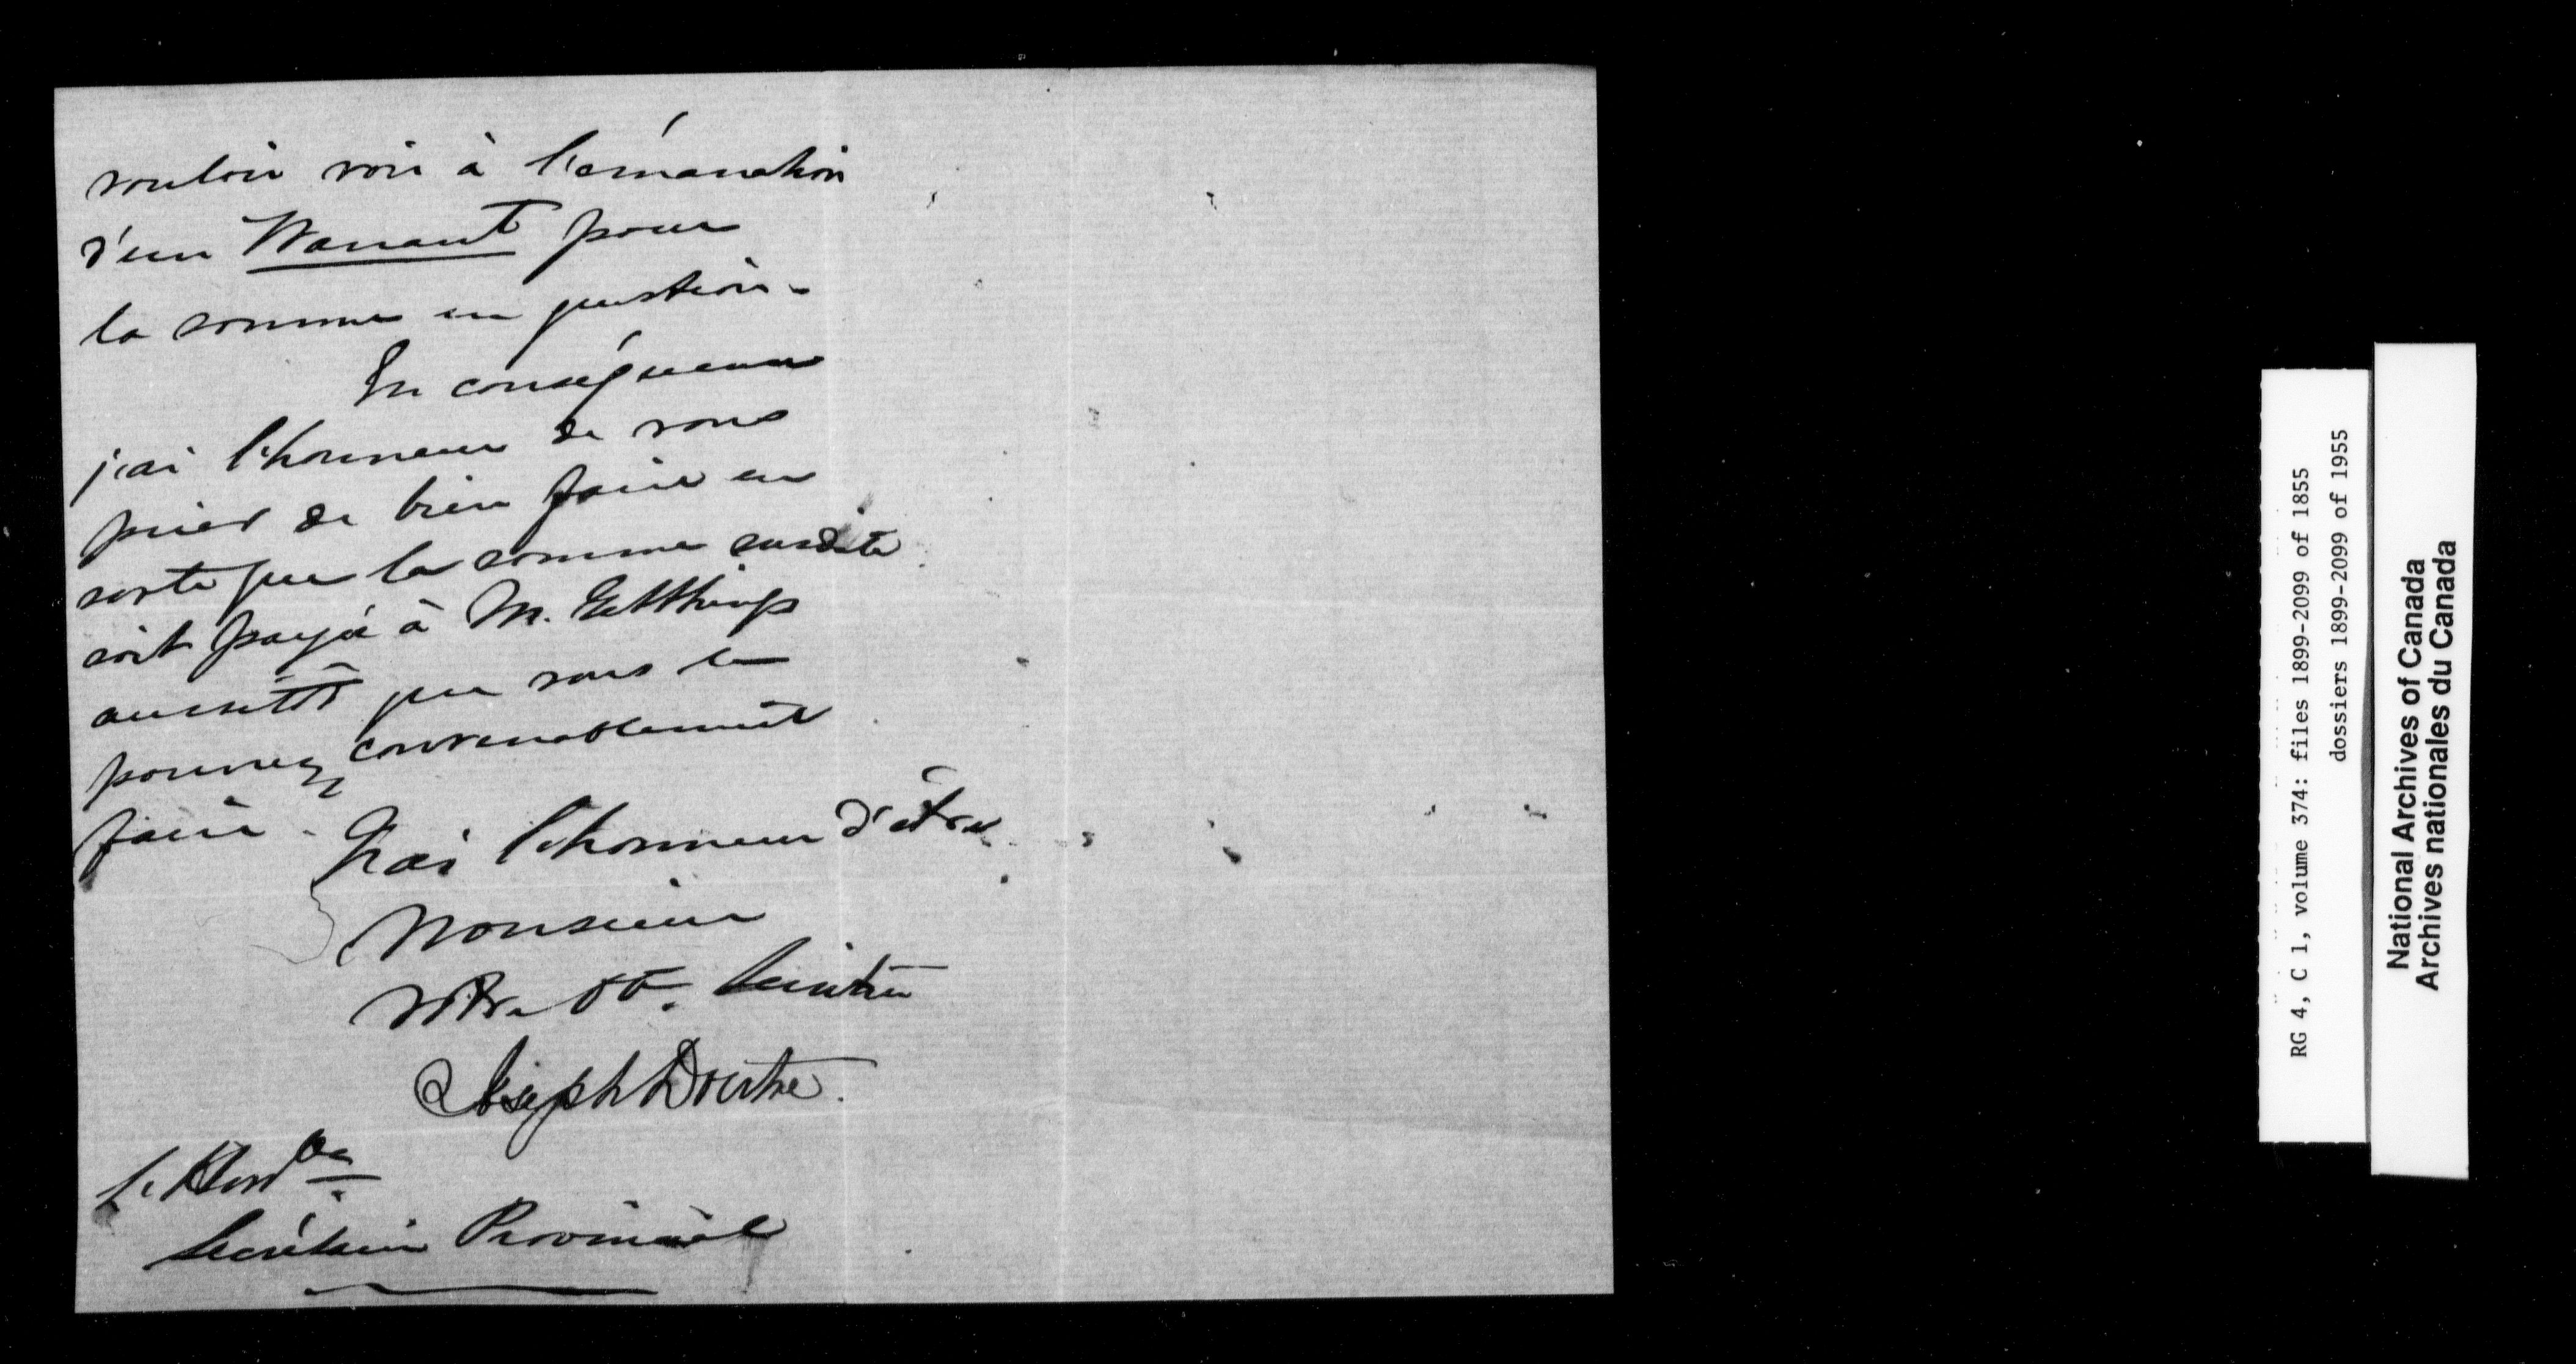 vouloir voir à l'émanation
d'un Warrant pour
la somme en question.
En conséquence
j'ai l'honneur de vous
prier de bien faire en
sorte que la somme susdite
soit payée à M. Gethings
aussitôt que vous le
pourrez convenablement
faire.
J'ai l'honneur d'être
Monsieur
Votre Ob. Serviteur
Joseph Doutre.
L'Honble
Secrétaire Provincial
RG 4, C 1, volume 374: files 1899-2099 of 1855
dossiers 1899-2099 of 1955
National Archives of Canada
Archives nationales du Canada